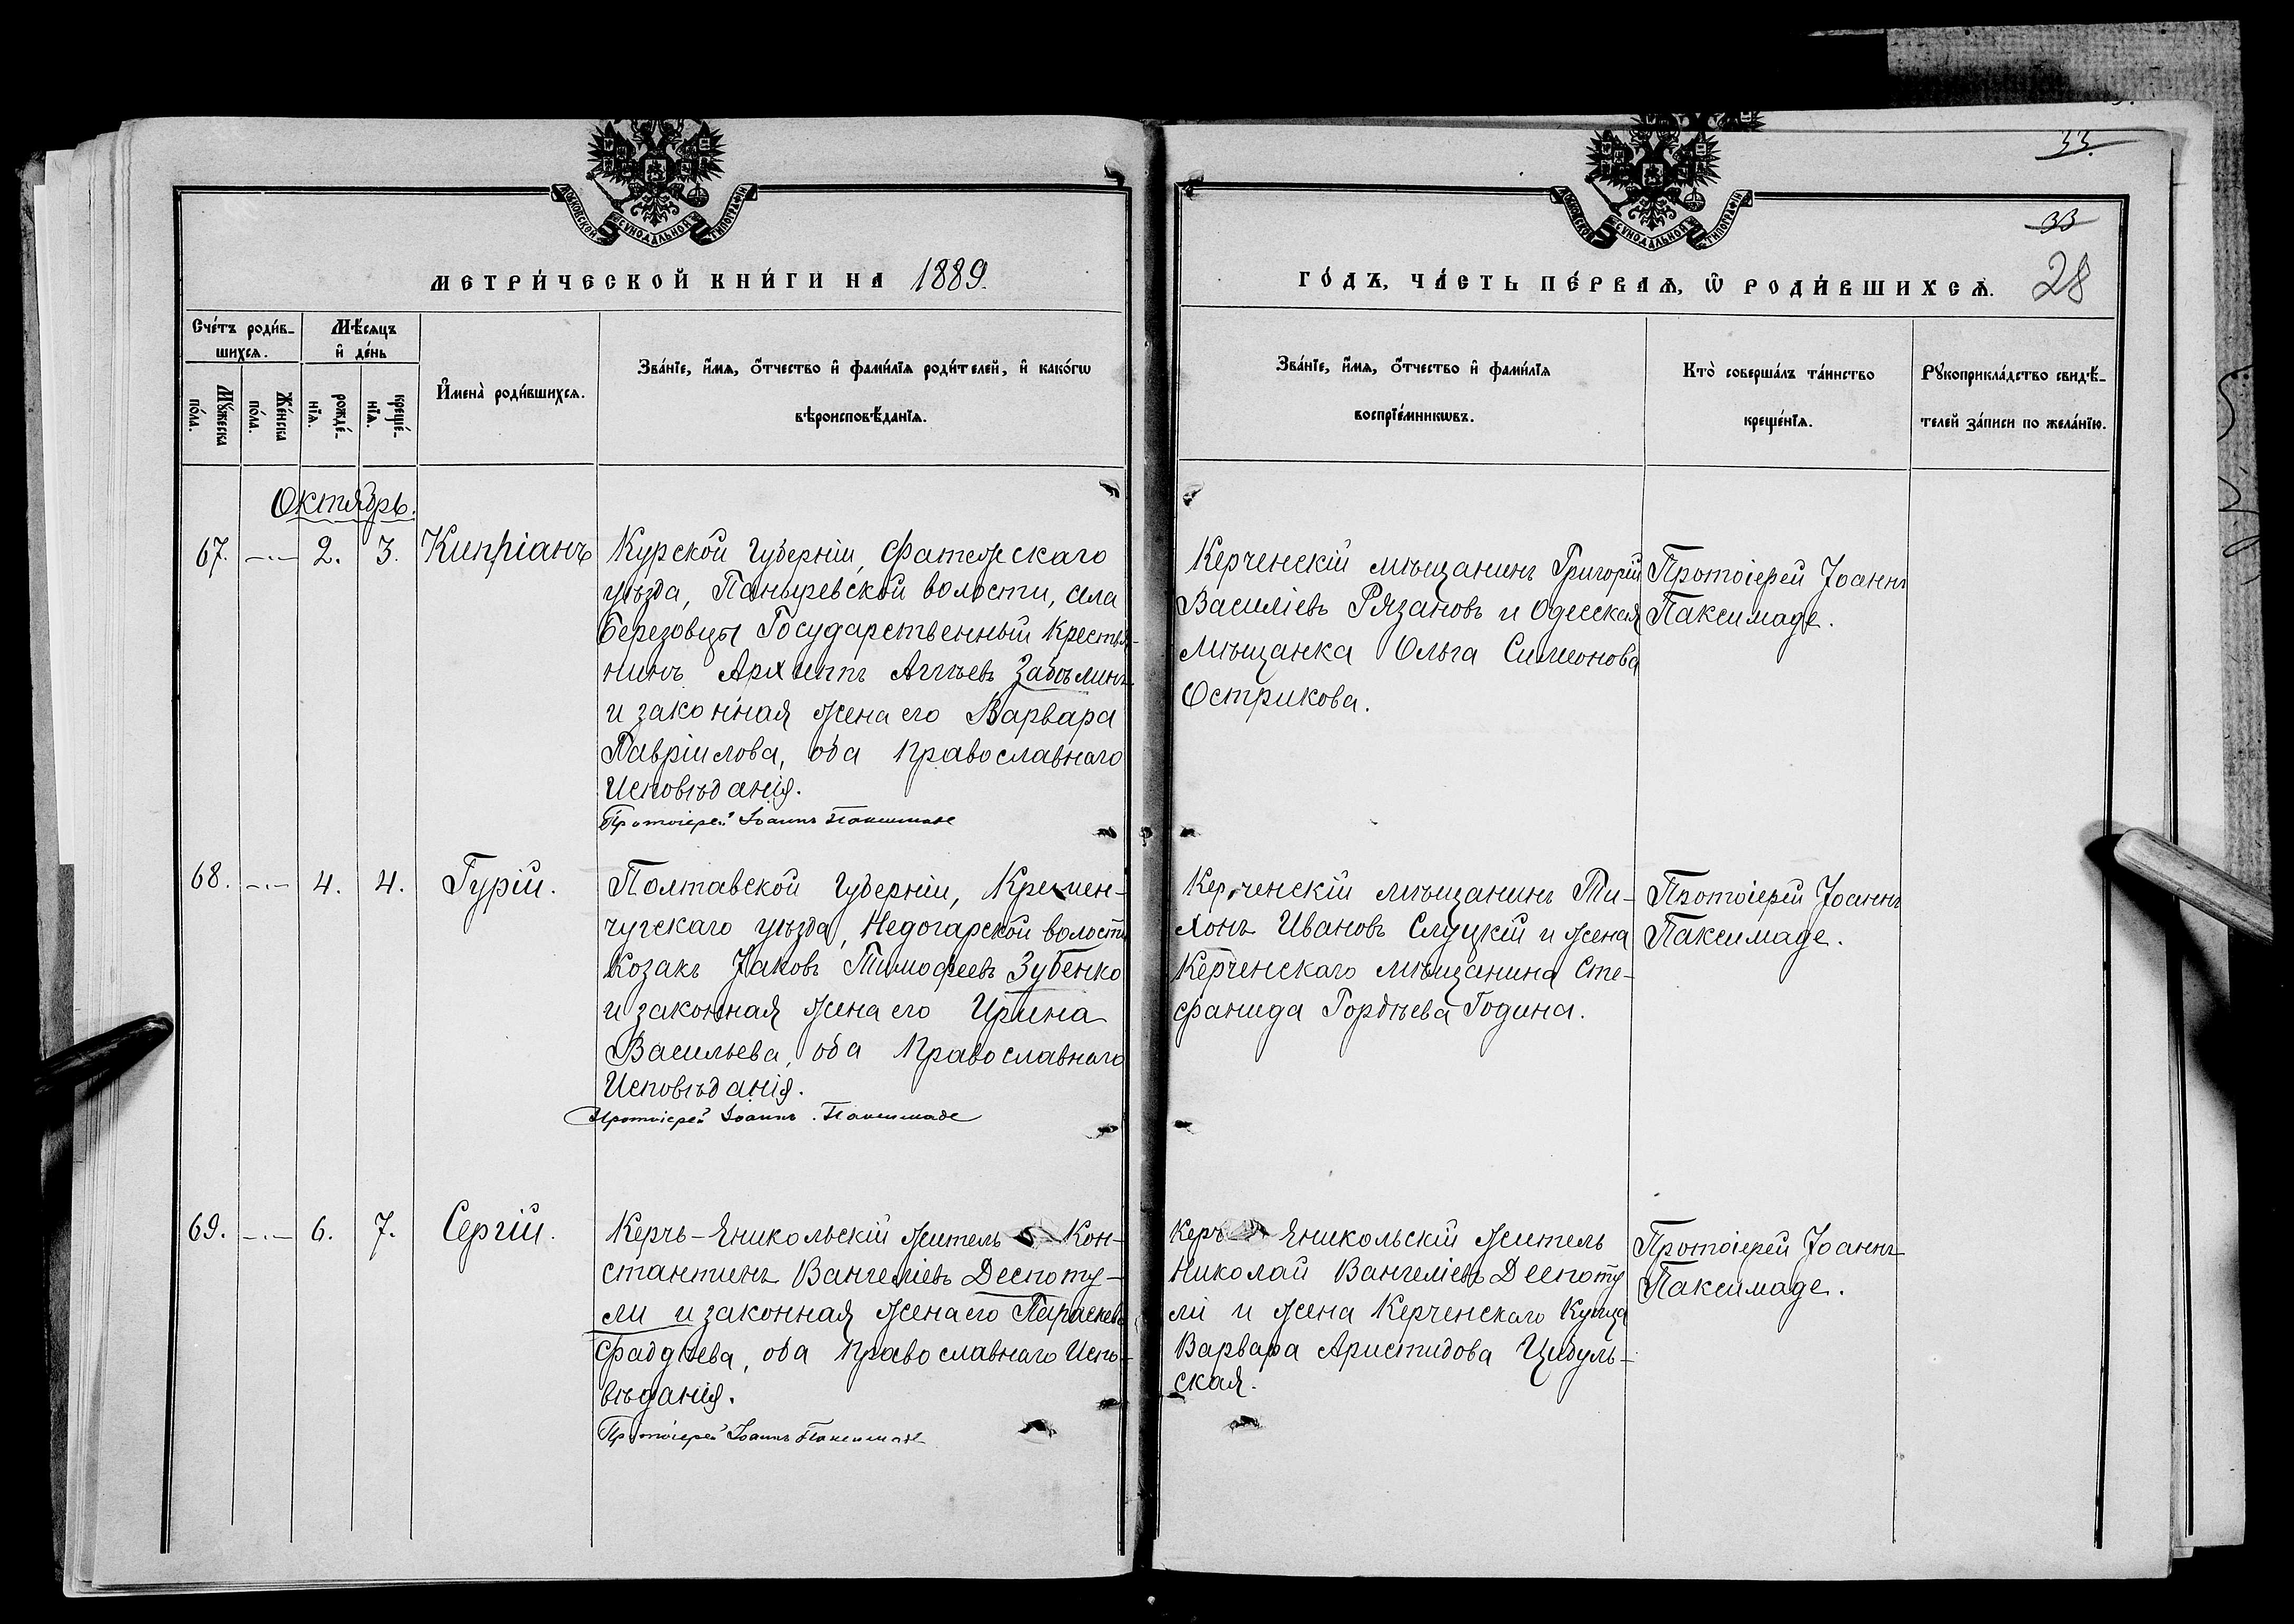 МОСКОВСКОЙ СѴНОДАЛЬНОЙ ТИПОГРАФІИ
МЕТРИ́ЧЕСКОЙ КНИ́ГИ НА 1889.
Сче́тъ роди́в-
шихсѧ.
Мѣ́сѧцъ
и҆ де́нь
Мꙋ́жеска
по́ла.
Же́нска
по́ла.
рожде́-
нїѧ.
креще́-
нїѧ.
И҆мена̀ роди́вшихсѧ.
Зва́нїе, и҆́мѧ, ѻ҆́тчество и҆ фами́лїѧ роди́телей, и҆ како́гѡ
вѣроисповѣ́данїѧ.
Октябрь.
67. —·— 2. 3. Кипріанъ
Курской Губерніи, Фатежскаго
уѣзда, Паныревской волости, села
Березовцы Государственный Крестья-
нинъ Архиппъ Аггѣевъ Забѣлинъ
и законная жена его Варвара
Гавріилова, оба Православнаго
Исповѣданія.
Протоіерей Іоаннъ Паксимаде
68. —·— 4. 4. Гурій.
Полтавской Губерніи, Кремен-
чугскаго уѣзда, Недогарской волости
Козакъ Іаковъ Тимофеевъ Зубенко
и законная жена его Ирина
Васильева, оба Православнаго
Исповѣданія.
Протоіерей Іоаннъ Паксимаде
69. —·— 6. 7. Сергій.
Керчь-Еникольскій житель Кон-
стантинъ Вангеліевъ Деспоту-
ли и законная жена его Параскева
Фаддѣева, оба Православнаго Испо-
вѣданія.
Протоіерей Іоаннъ Паксимаде
33
33
28
МОСКОВСКОЙ СѴНОДАЛЬНОЙ ТИПОГРАФІИ
ГО́ДЪ, ЧА́СТЬ ПЕ́РВАѦ, Ѽ РОДИ́ВШИХСѦ.
Зва́нїе, и҆́мѧ, ѻ҆́тчество и҆ фами́лїѧ
воспрїе́мникѡвъ.
Кто̀ соверша́лъ та́инство
креще́нїѧ.
Рꙋкоприкла́дство свидѣ́-
телей за́писи по жела́нїю.
Керченскій мѣщанинъ Григорій
Василіевъ Рязановъ и Одесская
мѣщанка Ольга Симеонова
Острикова.
Протоіерей Іоаннъ
Паксимаде.
Керченскій мѣщанинъ Ти-
хонъ Ивановъ Слуцкій и жена
Керченскаго мѣщанина Сте-
фанида Гордѣева Година.
Протоіерей Іоаннъ
Паксимаде.
Керчь Еникольскій житель
Николай Вангеліевъ Деспоту
ли и жена Керченскаго Купца
Варвара Аристидова Цибуль-
ская.
Протоіерей Іоаннъ
Паксимаде.